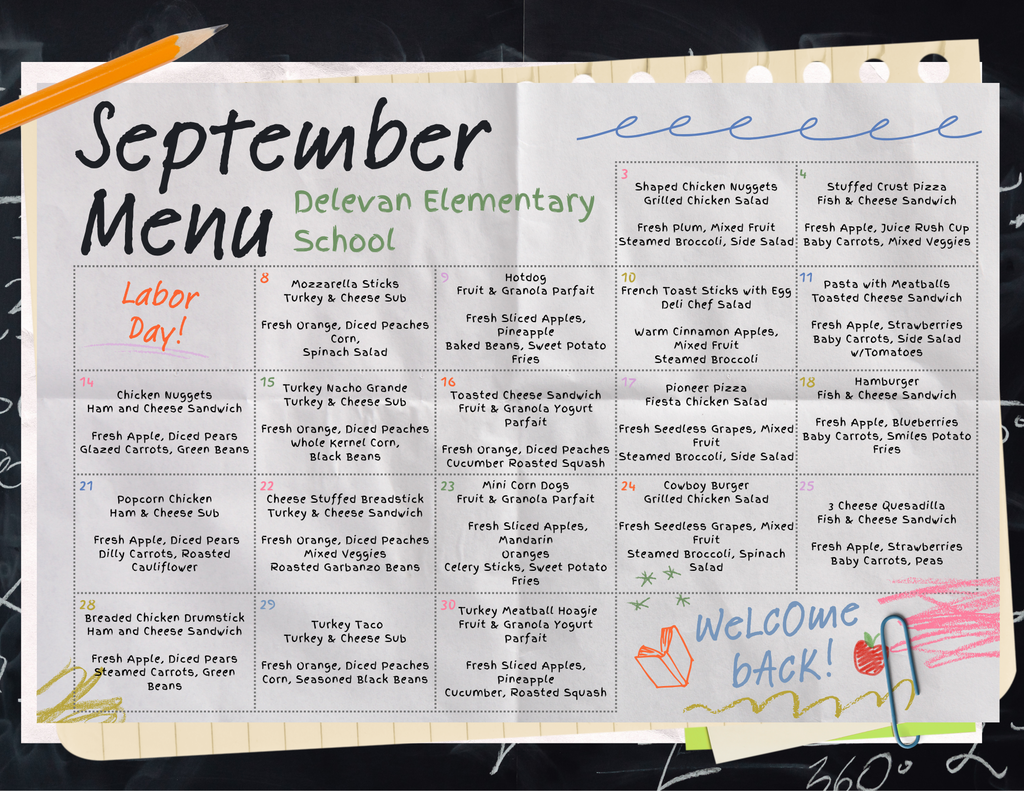 September
Menu
Delevan Elementary
School
3
Shaped Chicken Nuggets
Grilled Chicken Salad
Fresh Plum, Mixed Fruit
Steamed Broccoli, Side Salad
4
Stuffed Crust Pizza
Fish & Cheese Sandwich
Fresh Apple, Juice Rush Cup
Baby Carrots, Mixed Veggies
Labor
Day!
8
Mozzarella Sticks
Turkey & Cheese Sub
Fresh Orange, Diced Peaches
Corn,
Spinach Salad
9
Hotdog
Fruit & Granola Parfait
Fresh Sliced Apples,
Pineapple
Baked Beans, Sweet Potato
Fries
10
French Toast Sticks with Egg
Deli Chef Salad
Warm Cinnamon Apples,
Mixed Fruit
Steamed Broccoli
11
Pasta with Meatballs
Toasted Cheese Sandwich
Fresh Apple, Strawberries
Baby Carrots, Side Salad
w/Tomatoes
14
Chicken Nuggets
Ham and Cheese Sandwich
Fresh Apple, Diced Pears
Glazed Carrots, Green Beans
15
Turkey Nacho Grande
Turkey & Cheese Sub
Fresh Orange, Diced Peaches
Whole Kernel Corn,
Black Beans
16
Toasted Cheese Sandwich
Fruit & Granola Yogurt
Parfait
Fresh Orange, Diced Peaches
Cucumber Roasted Squash
17
Pioneer Pizza
Fiesta Chicken Salad
Fresh Seedless Grapes, Mixed
Fruit
Steamed Broccoli, Side Salad
18
Hamburger
Fish & Cheese Sandwich
Fresh Apple, Blueberries
Baby Carrots, Smiles Potato
Fries
21
Popcorn Chicken
Ham & Cheese Sub
Fresh Apple, Diced Pears
Dilly Carrots, Roasted
Cauliflower
22
Cheese Stuffed Breadstick
Turkey & Cheese Sandwich
Fresh Orange, Diced Peaches
Mixed Veggies
Roasted Garbanzo Beans
23
Mini Corn Dogs
Fruit & Granola Parfait
Fresh Sliced Apples,
Mandarin
Oranges
Celery Sticks, Sweet Potato
Fries
24
Cowboy Burger
Grilled Chicken Salad
Fresh Seedless Grapes, Mixed
Fruit
Steamed Broccoli, Spinach
Salad
25
3 Cheese Quesadilla
Fish & Cheese Sandwich
Fresh Apple, Strawberries
Baby Carrots, Peas
28
Breaded Chicken Drumstick
Ham and Cheese Sandwich
Fresh Apple, Diced Pears
Steamed Carrots, Green
Beans
29
Turkey Taco
Turkey & Cheese Sub
Fresh Orange, Diced Peaches
Corn, Seasoned Black Beans
30
Turkey Meatball Hoagie
Fruit & Granola Yogurt
Parfait
Fresh Sliced Apples,
Pineapple
Cucumber, Roasted Squash
WeLCOme
bACK!
360°